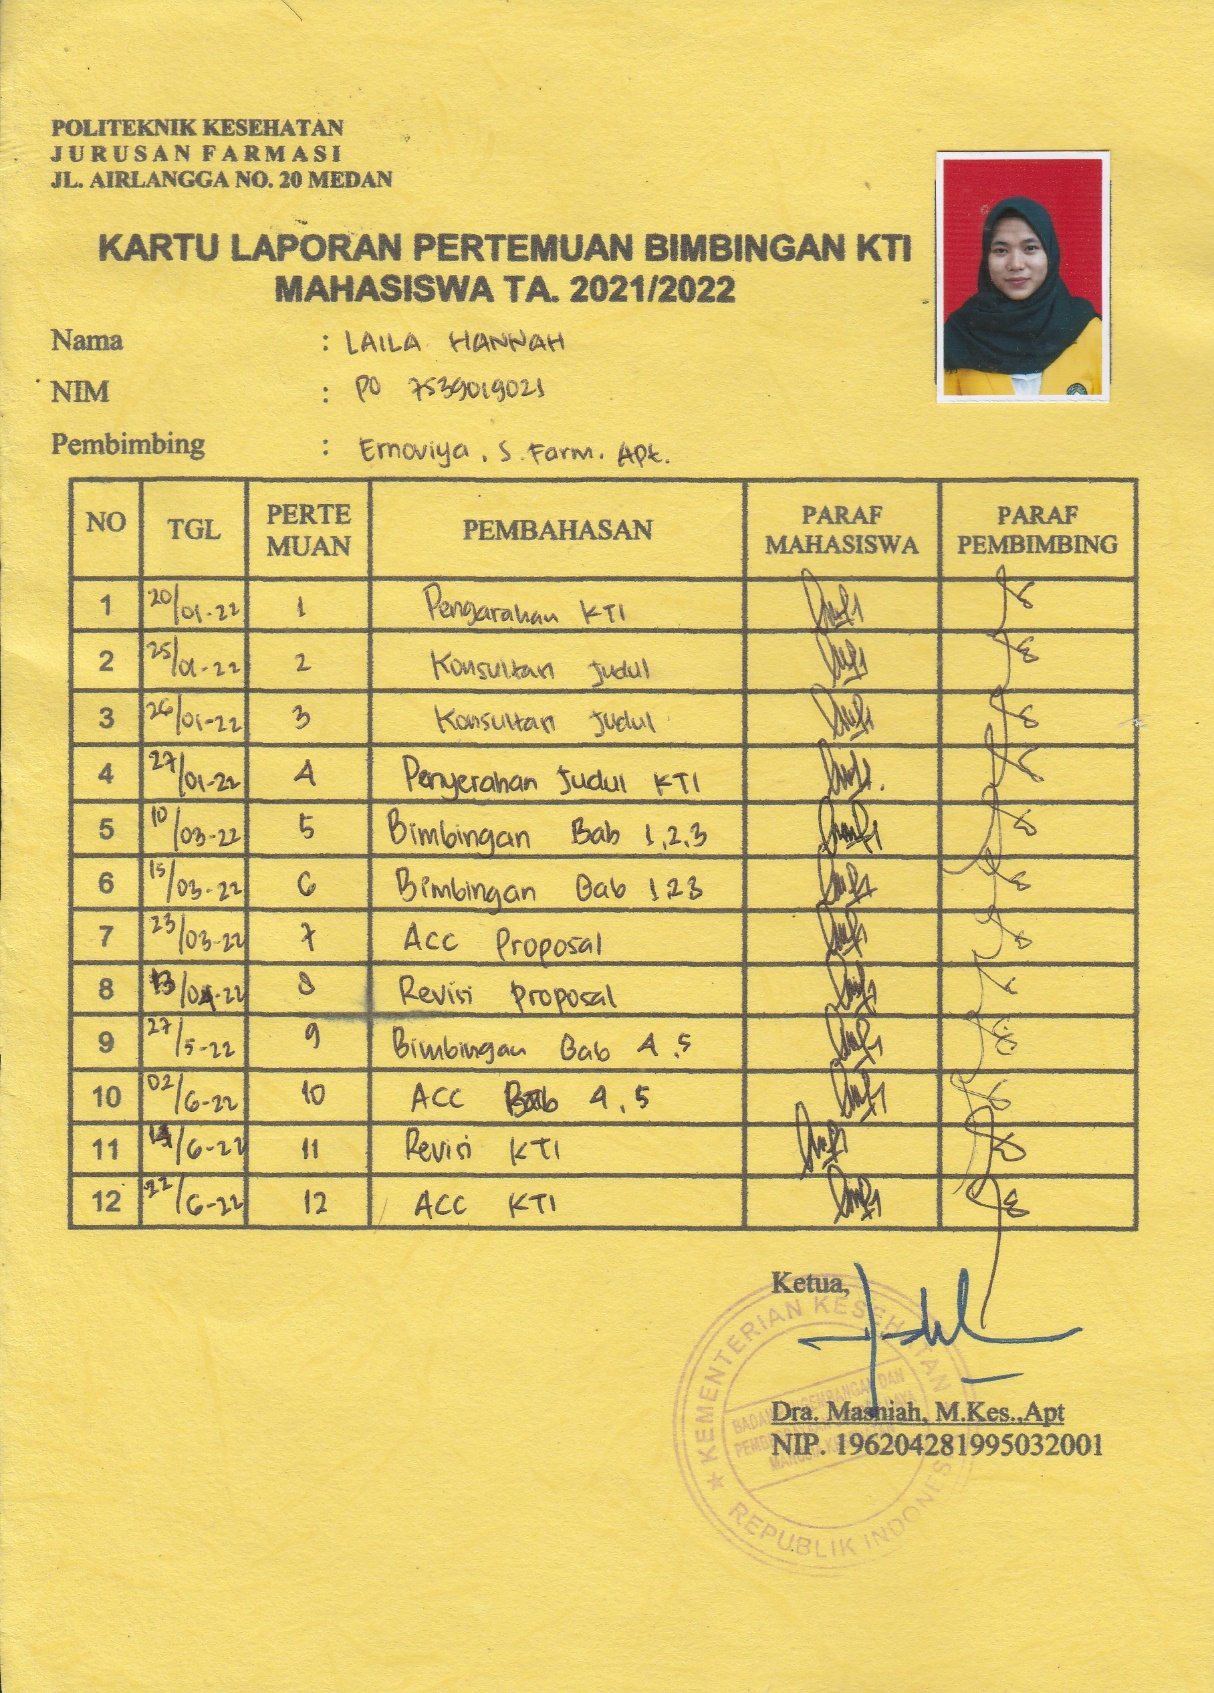 POLITEKNIK KESEHATAN
JURUSAN FARMASI
JL. AIRLANGGA NO. 20 MEDAN
KARTU LAPORAN PERTEMUAN BIMBINGAN KTI
MAHASISWA TA. 2021/2022
Nama : LAILA HANNAH
NIM : PO 7539019021
Pembimbing : Ernoviya, S. Farm. Apt.
NO TGL PERTE MUAN PEMBAHASAN PARAF MAHASISWA PARAF PEMBIMBING
1 20/01-22 1 Pengarahan KTI
2 25/01-22 2 Konsultan Judul
3 26/01-22 3 Konsultan Judul
4 27/01-22 4 Penyerahan Judul KTI
5 10/03-22 5 Bimbingan Bab 1,2,3
6 15/03-22 6 Bimbingan Bab 1 2 3
7 23/03-22 7 ACC Proposal
8 13/04-22 8 Revisi Proposal
9 27/5-22 9 Bimbingan Bab 4,5
10 02/6-22 10 ACC Bab 4,5
11 14/6-22 11 Revisi KTI
12 22/6-22 12 ACC KTI
Ketua,
KEMENTERIAN KESEHATAN
REPUBLIK INDONESIA
Dra. Masniah, M.Kes.,Apt
NIP. 196204281995032001